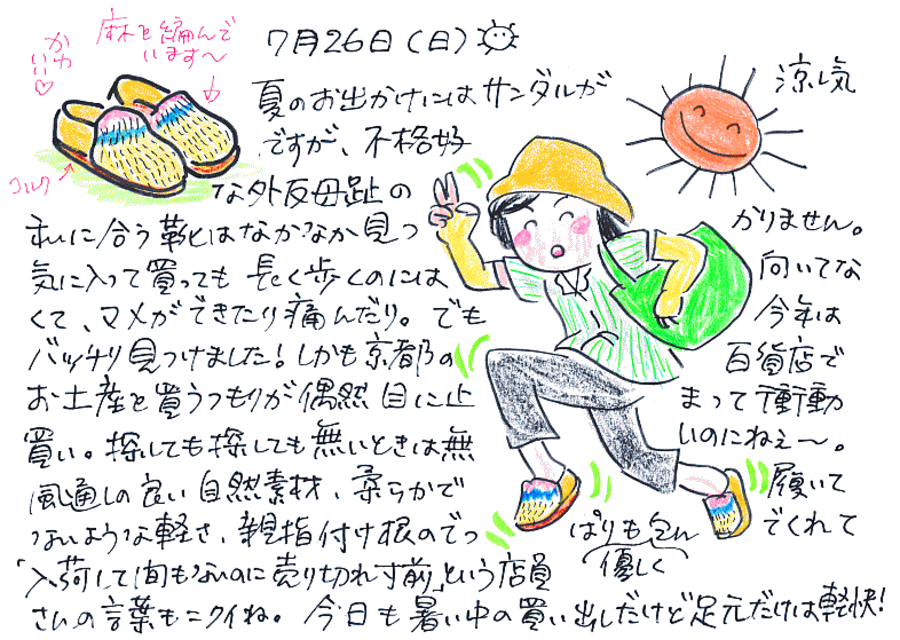 7月26日(日)
麻を編んで
います〜
かわ
いい♡
コルク
夏のお出かけにはサンダルが 涼し気
ですが、不格好
な外反母趾の
私に合う靴はなかなか見つ かりません。
気に入って買っても長く歩くのには 向いてな
くて、マメができたり痛んだり。でも 今年は
バッチリ見つけました!しかも京都の 百貨店で
お土産を買うつもりが偶然目に止 まって衝動
買い。探しても探しても無いときは無 いのにねぇ〜。
風通しの良い自然素材、柔らかで 履いて
ないような軽さ、親指付け根のでっ ぱりも包ん でくれて
優しく
「入荷して間もないのに売り切れ寸前」という店員
さんの言葉もニクイね。今日も暑い中の買い出しだけど足元だけは軽快!